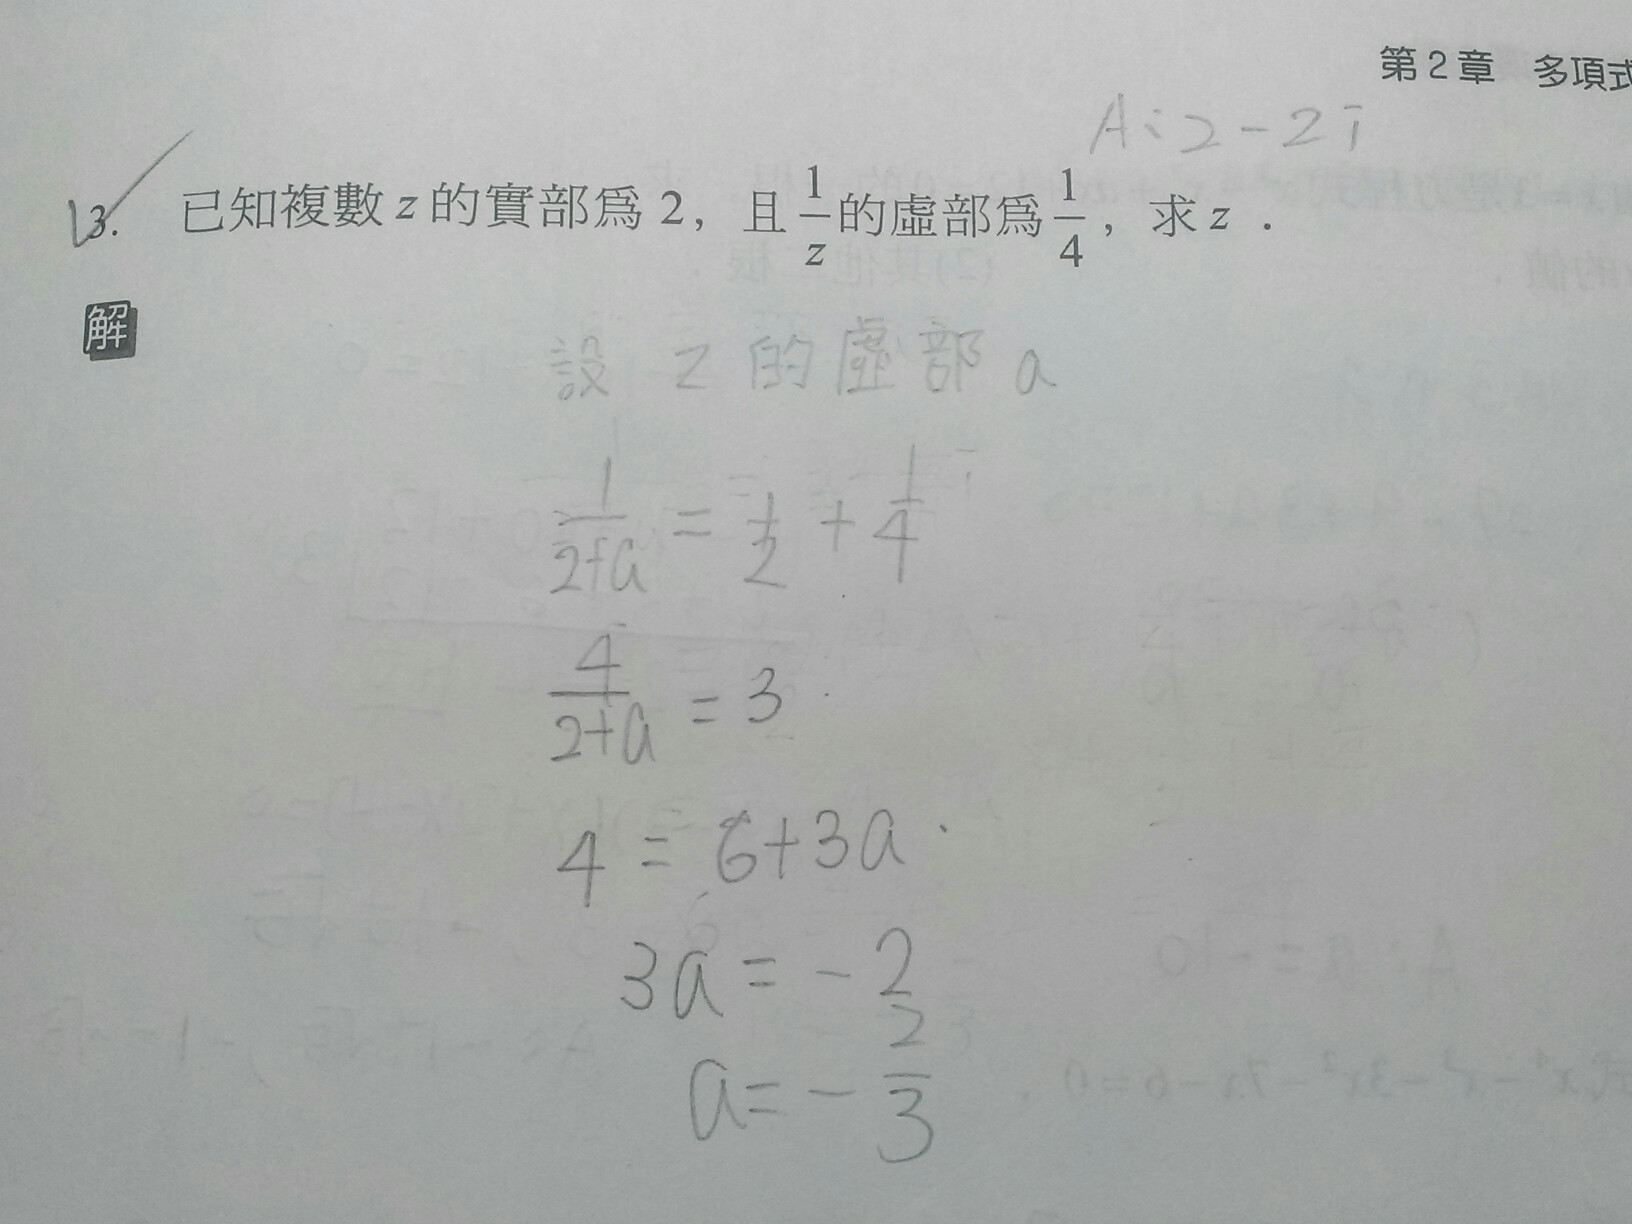 第2章 多項式
A:2-2i
13. 已知複數 z 的實部為 2，且 1/z 的虛部為 1/4，求 z．
解
設 z 的虛部 a
1/(2+a) = 1/2 + 1/4 i
4/(2+a) = 3
4 = 6+3a
3a = -2
a = -2/3